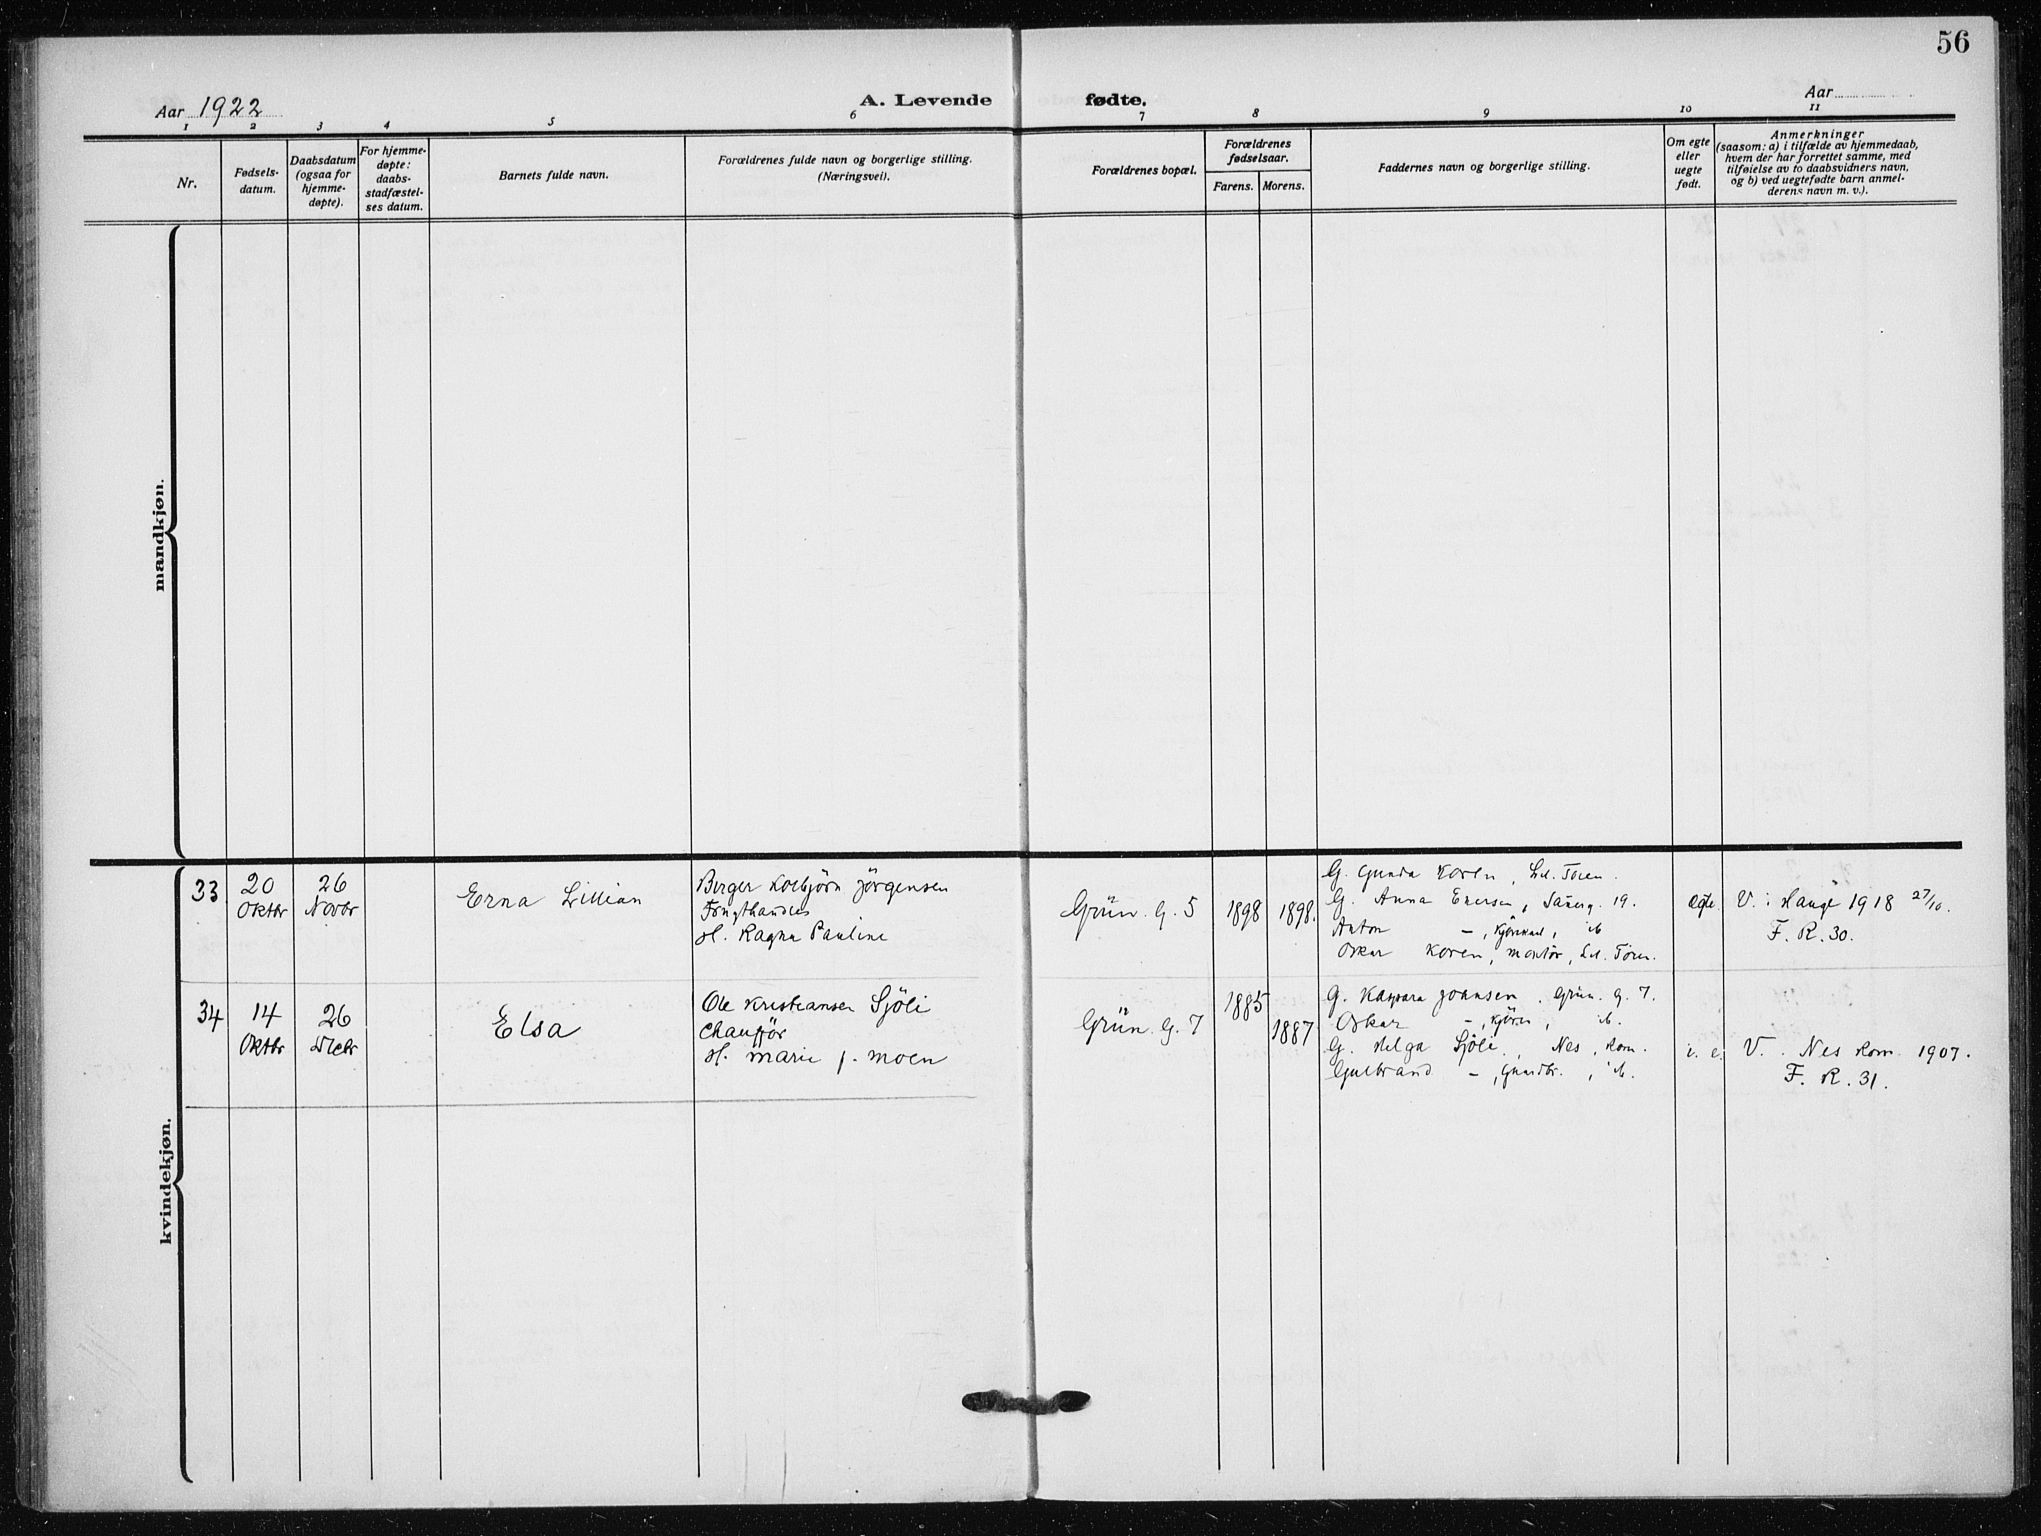 56
Aar 1922
A. Levende fødte.
Aar
1 2 3 4 5 6 7 8 9 10 11
Nr.
Fødsels-
datum.
Daabsdatum
(ogsaa for
hjemme-
døpte).
For hjemme-
døpte:
daabs-
stadfæstel-
ses datum.
Barnets fulde navn.
Forældrenes fulde navn og borgerlige stilling.
(Næringsvei).
Forældrenes bopæl.
Forældrenes
fødselsaar.
Farens. Morens.
Faddernes navn og borgerlige stilling.
Om egte
eller
uegte
født.
Anmerkninger
(saasom: a) i tilfælde av hjemmedaab,
hvem der har forrettet samme, med
tilføielse av to daabsvidners navn,
og b) ved uegtefødte barn anmel-
derens navn m. v.).
mandkjøn.
kvindekjøn.
33
20
Oktbr
26
Novbr
Erna Lillian
Birger Kolbjörn Jörgensen
Frugthandler
H. Ragna Pauline
Grün. g. 5
1898
1898.
G. Gunda Koren, Lil. Töien.
G. Anna Enersen, 19.
Anton —,
Oskar Koren, montör, Lil. Töien.
egte.
V. i Hauge 1918 27/10.
F. R. 30.
34
14
Oktbr
26
Decbr
Elsa
Ole Kristiansen Sjöli
Chaufför
H. Marie f. Moen
Grün. g. 7
1885
1887
G. Kaspara Johnsen, Grün. g. 7.
Oskar —,
G. Helga Sjöli, Nes, Rom.
Gulbrand —, Gaardbr.,
i. e.
V. Nes Rom. 1907.
F. R. 31.